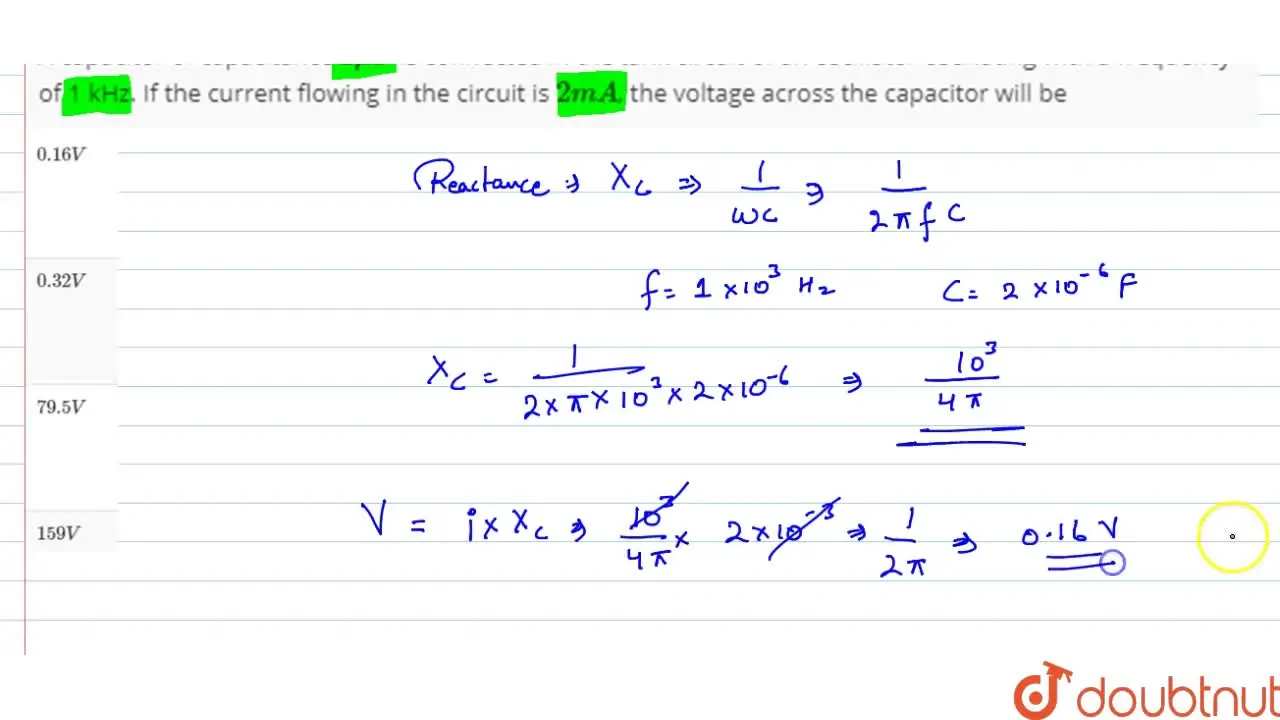 of 1 kHz. If the current flowing in the circuit is 2mA, the voltage across the capacitor will be
0.16V
Reactance ⇒ X_C ⇒ 1/ωC ⇒ 1/2πfC
0.32V
f = 1×10³ Hz C = 2×10⁻⁶ F
X_C = 1/2×π×10³×2×10⁻⁶ ⇒ 10³/4π
79.5V
V = i×X_C ⇒ 10³/4π × 2×10⁻³ ⇒ 1/2π ⇒ 0.16 V
159V
doubtnut